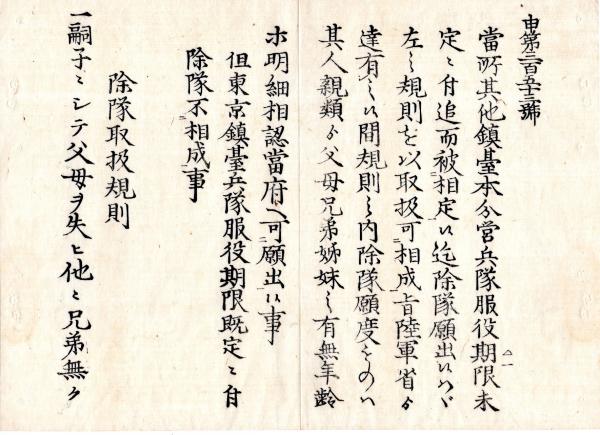 申第三百五十三號
當所其他鎮臺本分營兵隊服役期限未
定ニ付追而被相定候迄除隊願出候ハヾ
左之規則を以取扱可相成旨陸軍省ゟ
達有之候間規則之内除隊願度ものハ
其人親類ゟ父母兄弟姊妹之有無年齡
等明細相認當府へ可願出候事
但東京鎮臺兵隊服役期限既定ニ付
除隊不相成事
除隊取扱規則
一嗣子ニシテ父母ヲ失ヒ他ニ兄弟無ク